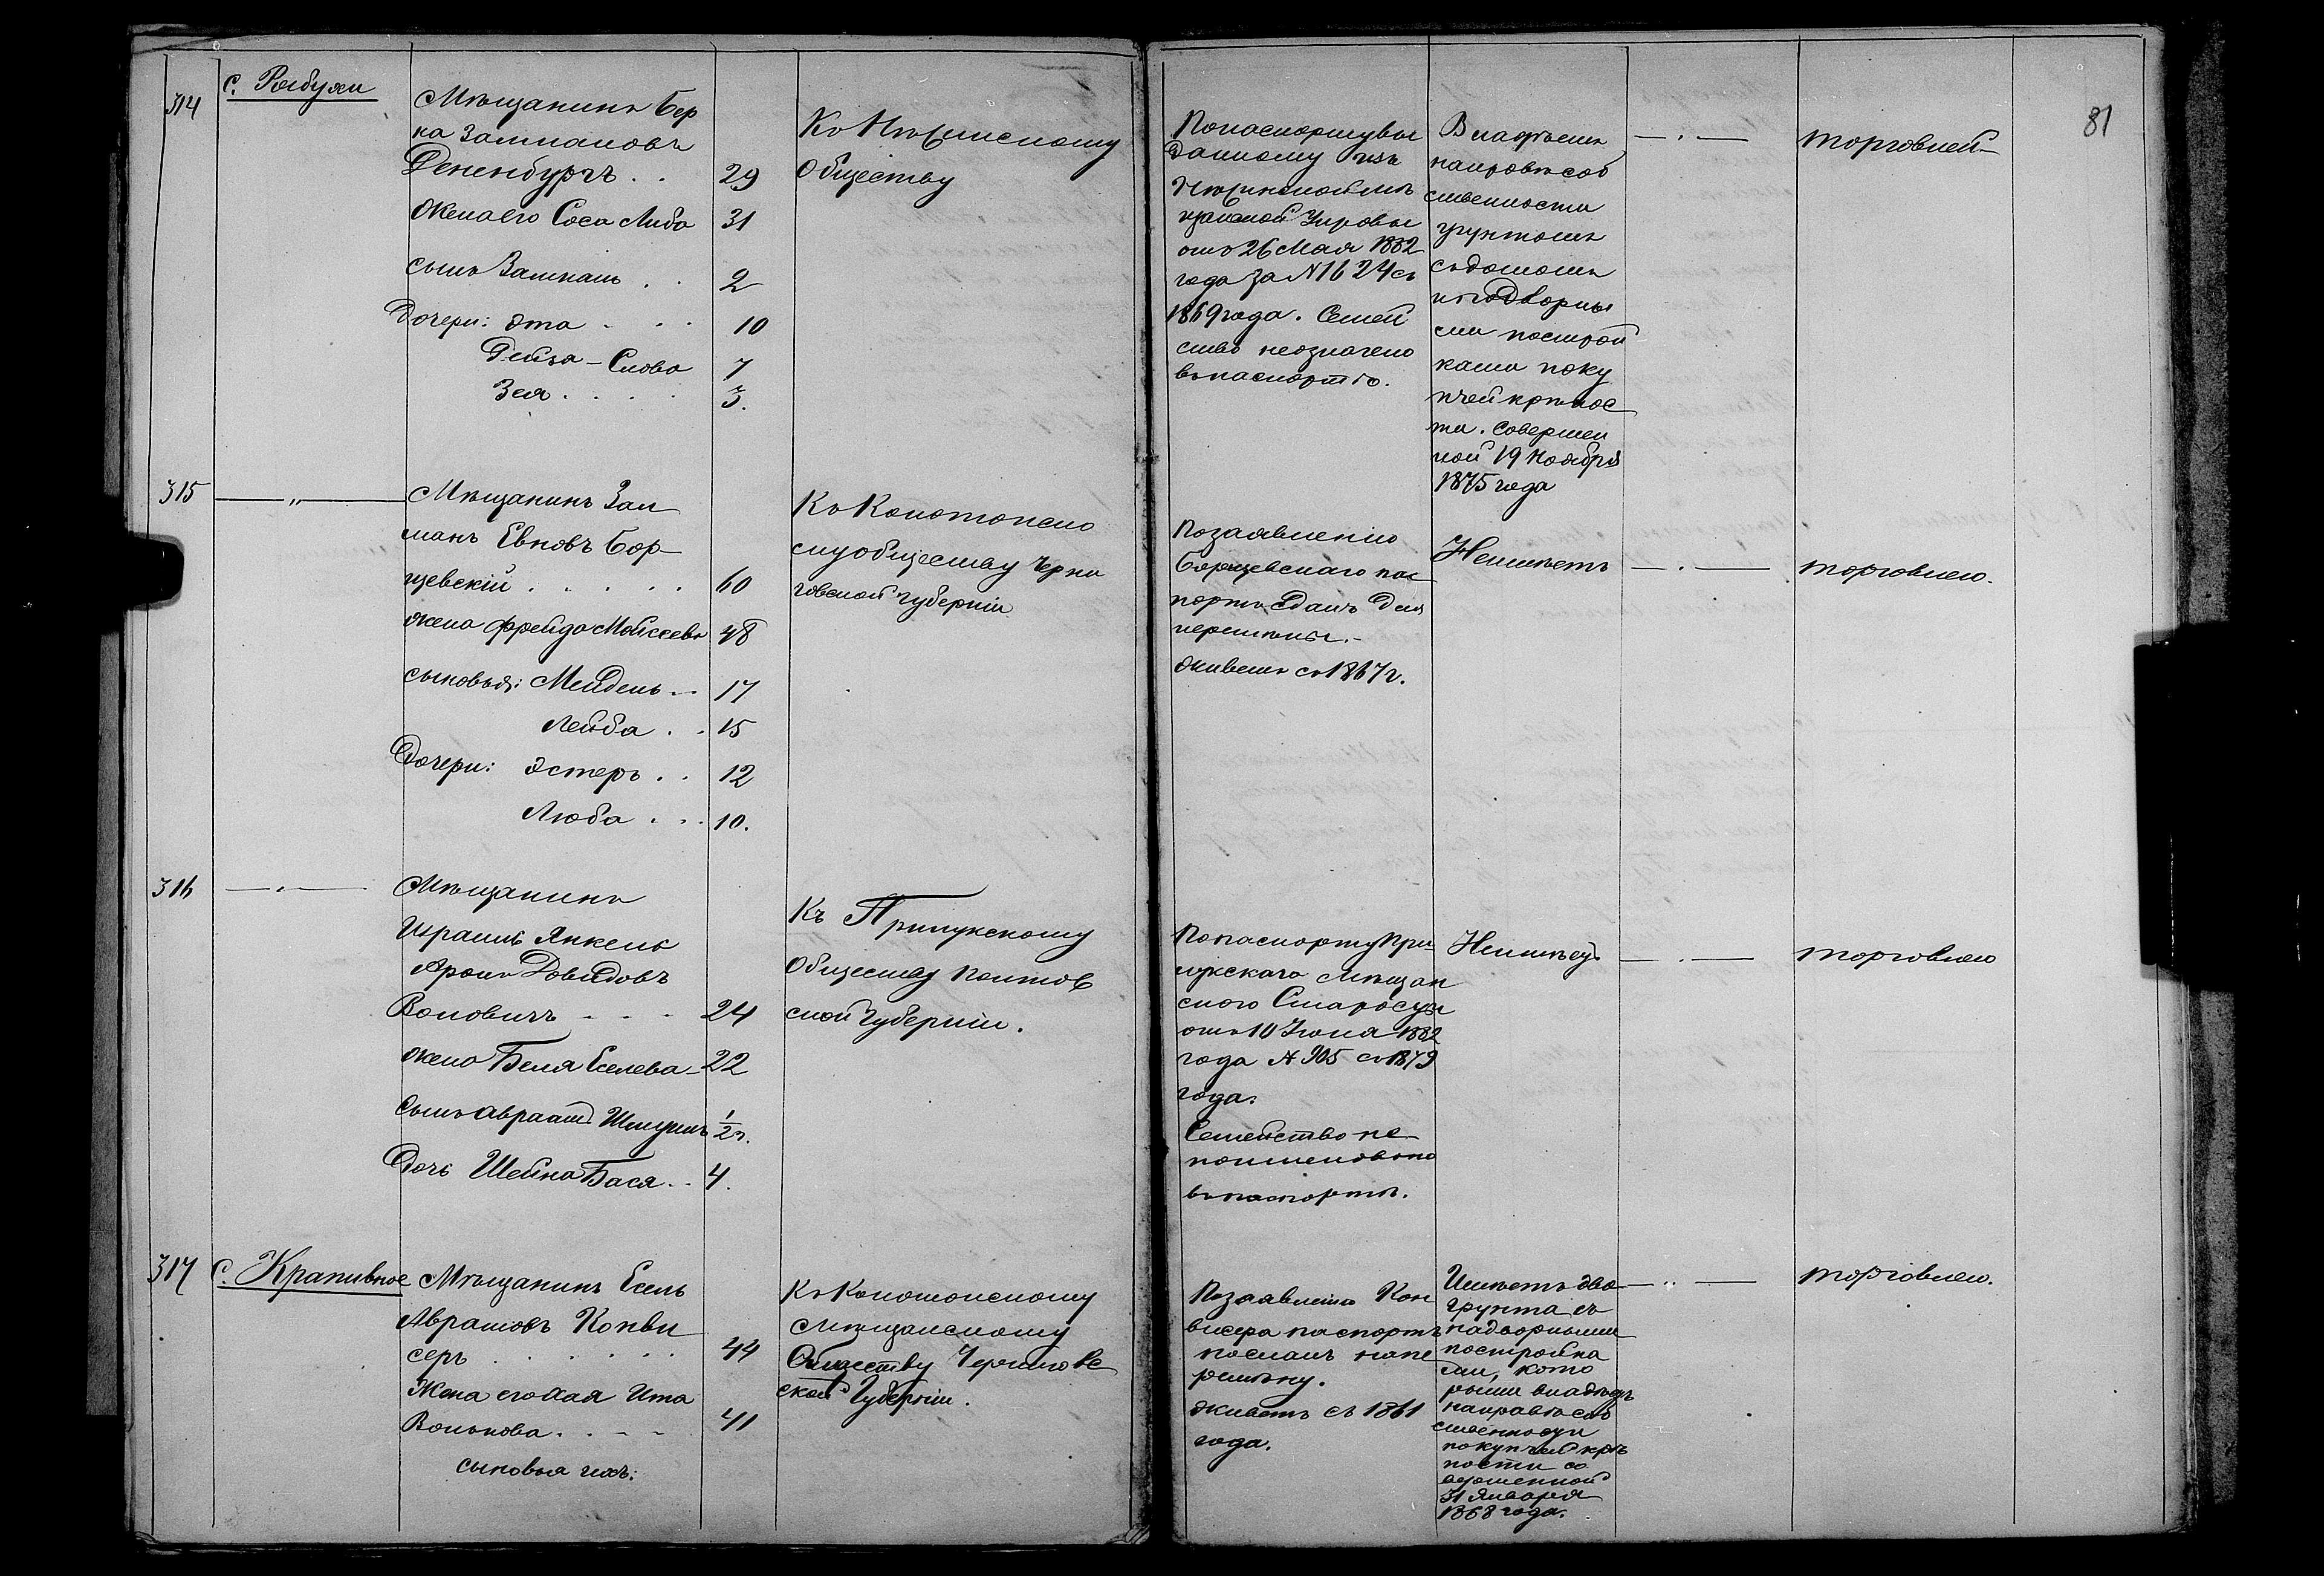 81
314
с. Рыбухи
Мѣщанинъ Бер
ка Залмановъ
Дененбургъ . . 29
Жена его Соса Либа 31
сынъ Залманъ . . 2
Дочери: Эта . . . 10
Рейза-Слова 7
Зея . . . . 3.
Къ Нѣжинскому
Обществу
По паспорту вы
данному изъ
Нѣжинской мѣ
щанской Управы
отъ 26 Мая 1882
года за № 1624 съ
1869 года. Семей
ство неозначено
въ паспортѣ.
Владѣетъ
на правѣ соб
ственности
грунтомъ
съ домомъ
и надворны
ми построй
ками по ку
пчей крѣпос
ти. Совершен
ной 19 Ноября
1875 года
торговлей
315
Мѣщанинъ Зал
манъ Евновъ Бор
щевскій . . . . . 60
жена Фрейда Мойсеева 48
сыновья: Мендель . . 17
Лейба . . 15
Дочери: Эстеръ . . 12
Люба . . . 10.
Къ Конотопско
му обществу Черни
говской губерніи
По заявленію
Борщевскаго пас
портъ сданъ для
перемѣны.
живетъ съ 1867 г.
Неимѣетъ
торговлею.
316
Мѣщанинъ
Израиль Янкель
Аронъ Довидовъ
Воловичъ - - - 24
жена Беля Еселева - 22
Сынъ Авраамъ Шмуилъ 1/2 г.
Дочь Шейна Бася . . 4.
Къ Прилукскому
Обществу Полтов
ской Губерніи.
По паспорту При-
лукскаго Мѣщан
ского Старосты
отъ 10 Іюня 1882
года № 905 съ 1879
года.
Семейство не-
поименовано
въ паспортѣ.
Неимѣетъ
торговлею
317
с. Крапивное
Мѣщанинъ Есель
Аврамовъ Конви
серъ . . . . . . 44
Жена его Хая Ита
Волькова . . - - 41
сыновья ихъ:
Къ Конотопскому
Мѣщанскому
Обществу Черниговс
ской Губерніи.
По заявленію Кон
висера паспортъ
посланъ на пе
ремѣну.
живетъ съ 1861
года.
Имѣетъ два
грунта съ
надворными
постройка
ми, кото
рыми владѣетъ
на правѣ соб
ственности
по купчей крѣ
пости со
вершенной
31 Января
1868 года.
торговлею.